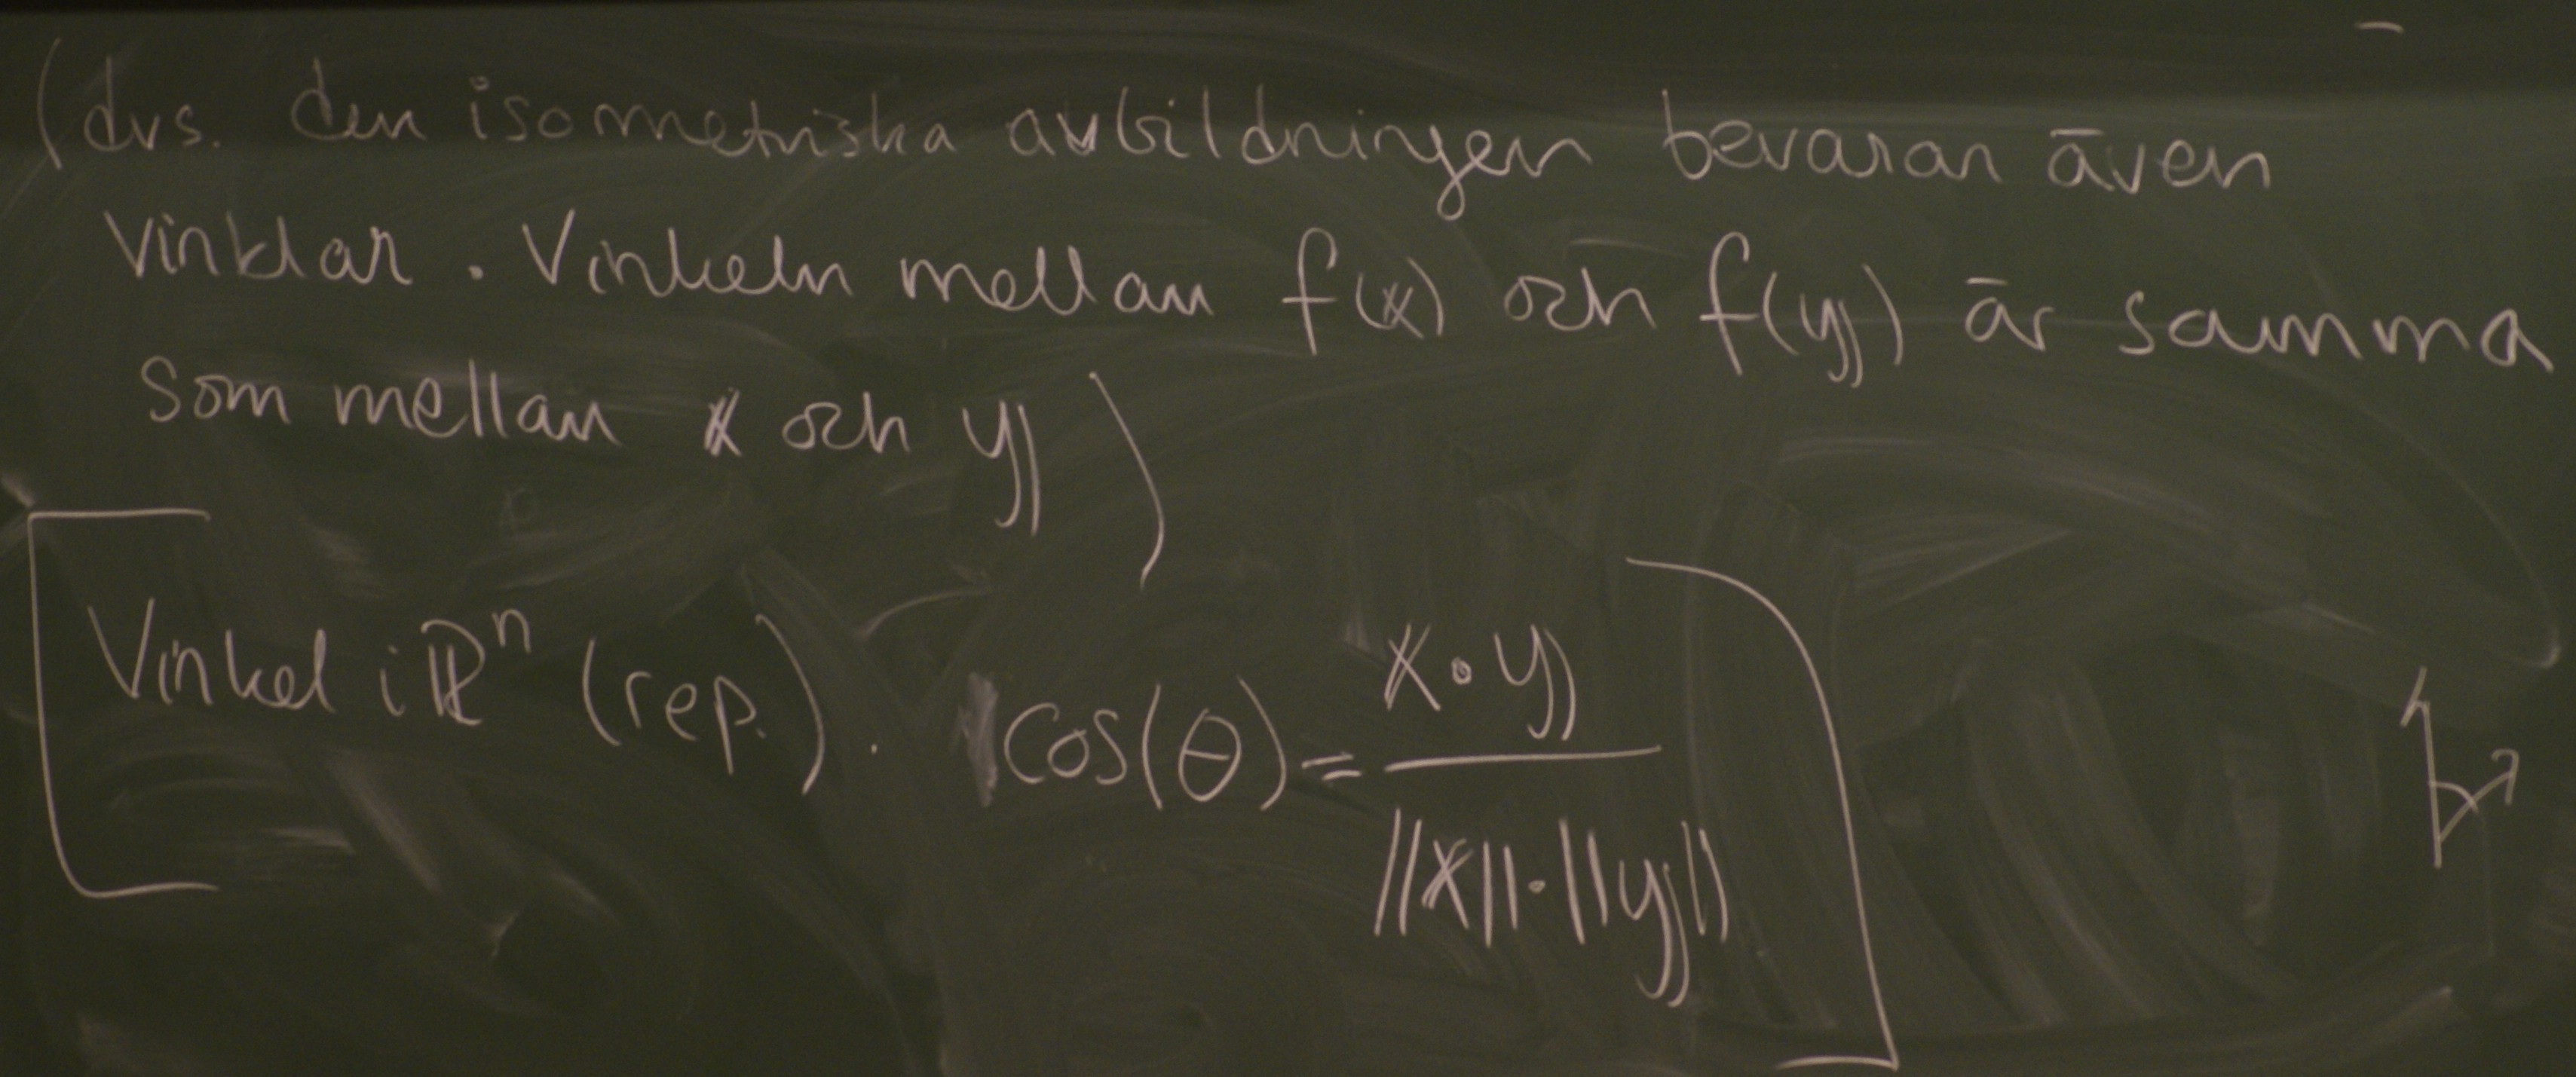 (dvs. den isometriska avbildningen bevarar även
vinklar. Vinkeln mellan f(x) och f(y) är samma
som mellan x och y)
Vinkel i ℝⁿ (rep.). cos(θ) = x·y / ||x||·||y||